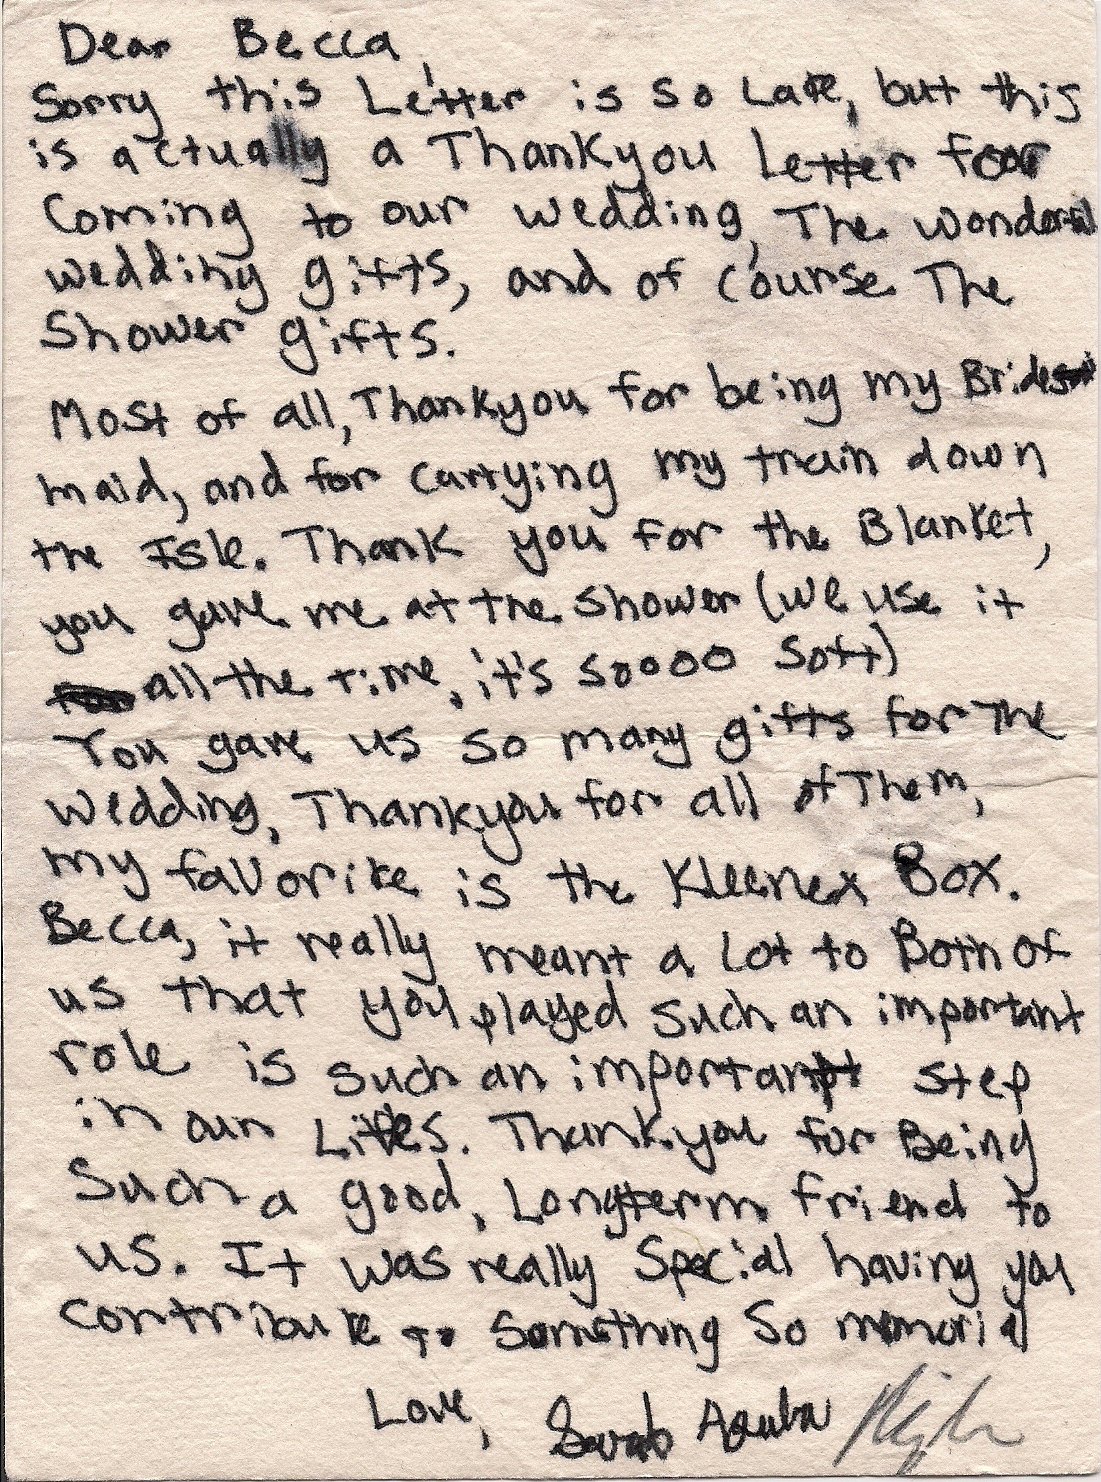 Dear Becca,
Sorry this Letter is so Late, but this
is actually a Thankyou Letter for
Coming to our wedding, The wonderful
wedding gifts, and of course The
Shower gifts.
Most of all, Thankyou for being my Brides
maid, and for carrying my train down
the Isle. Thank you for the Blanket,
you gave me at the shower (we use it
all the time, it's soooo soft)
You gave us so many gifts for The
wedding, Thankyou for all of Them,
my favorite is the Kleenex Box.
Becca, it really meant a Lot to Both of
us that you played such an important
role is such an important step
in our Lives. Thankyou for Being
Such a good, Longterm friend to
us. It was really Special having you
contribute to Something So memorial
Love, Sarah